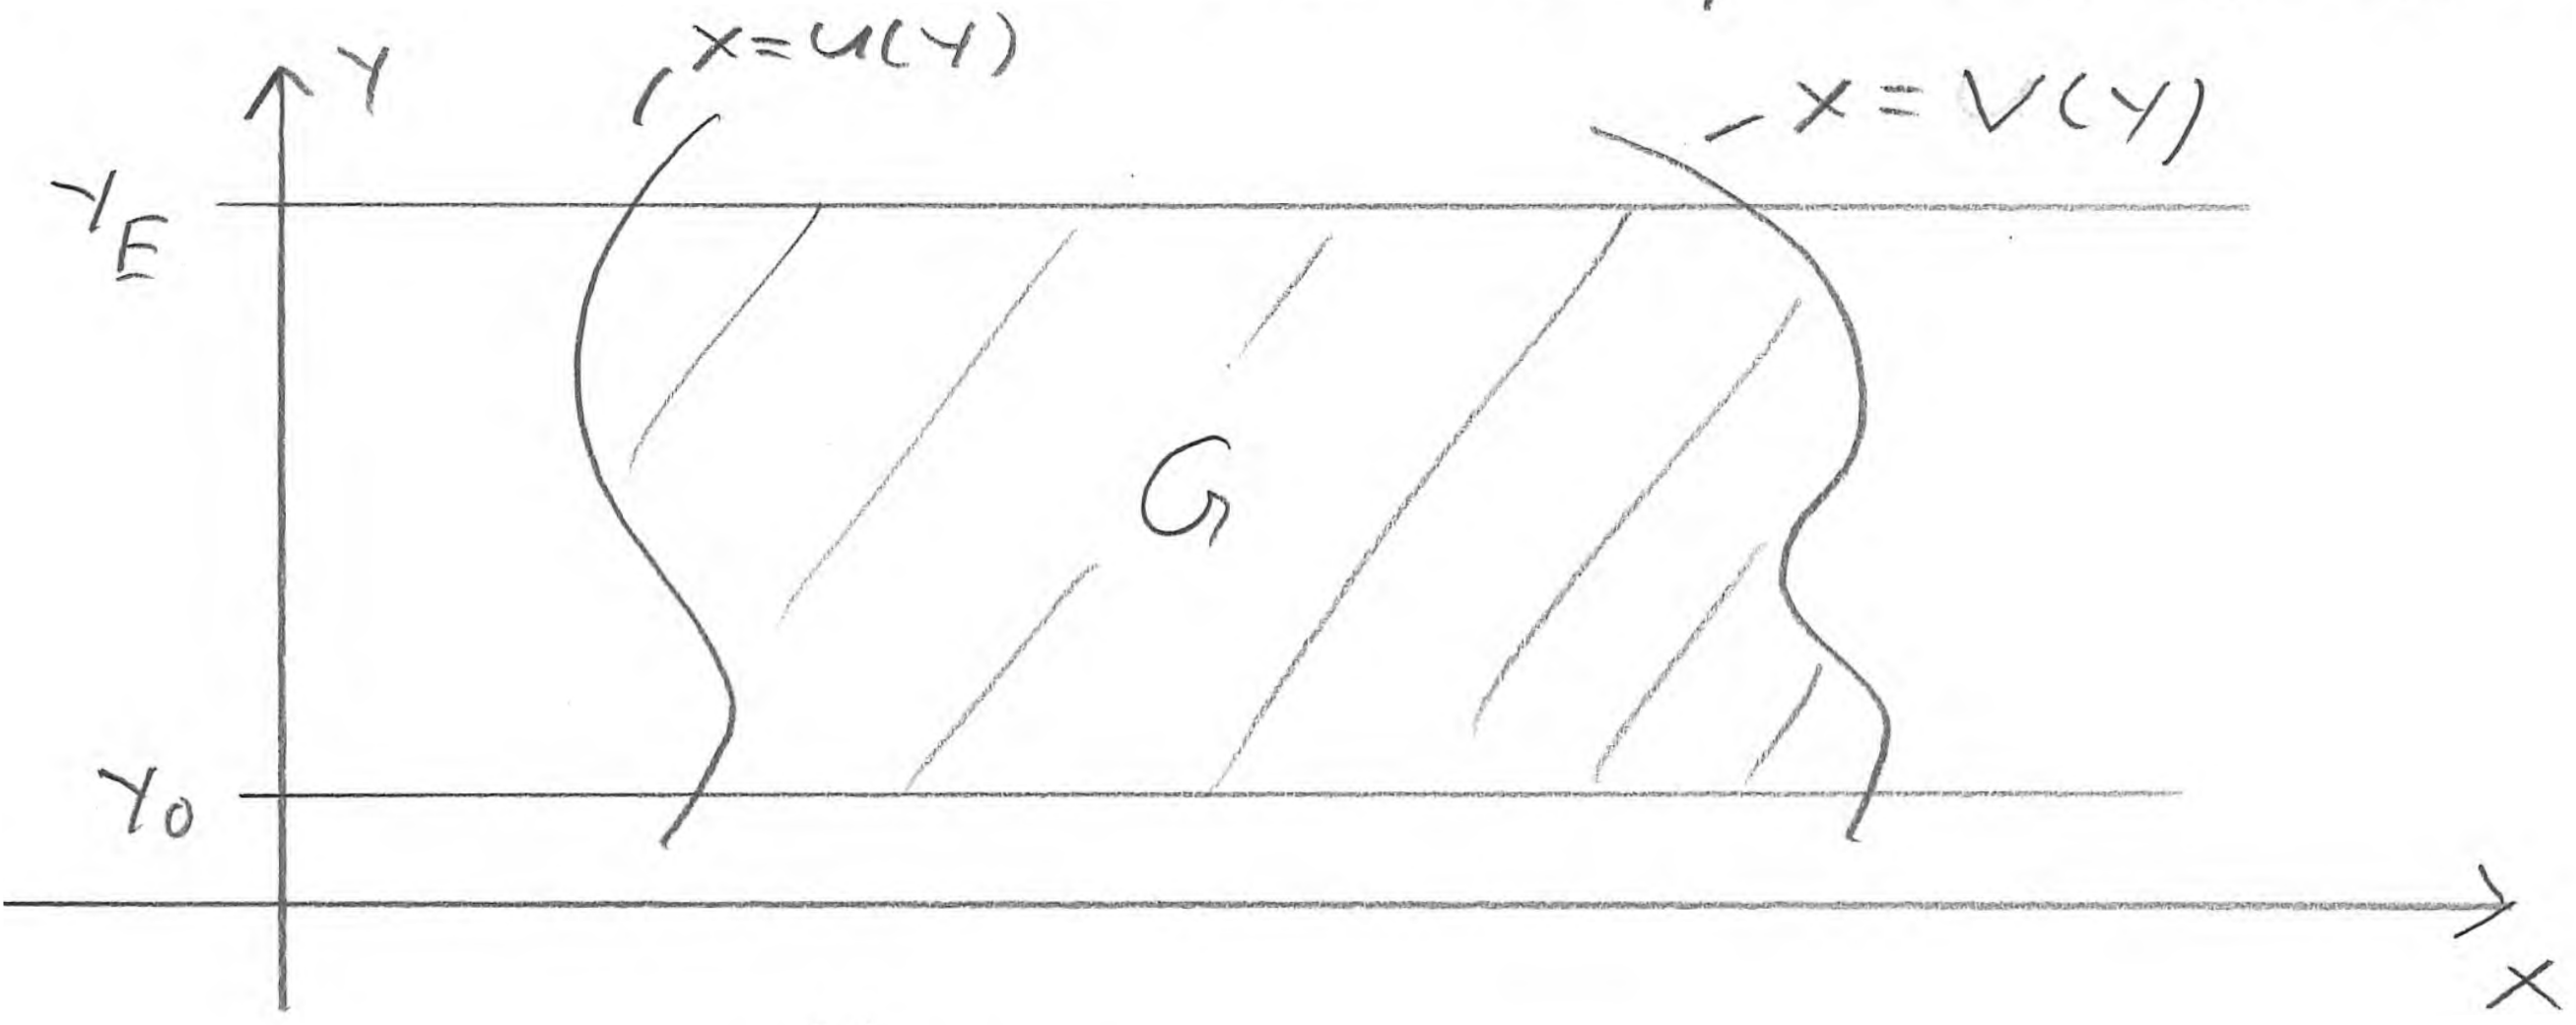 x=u(y)
y
x=v(y)
y_E
G
y_0
x